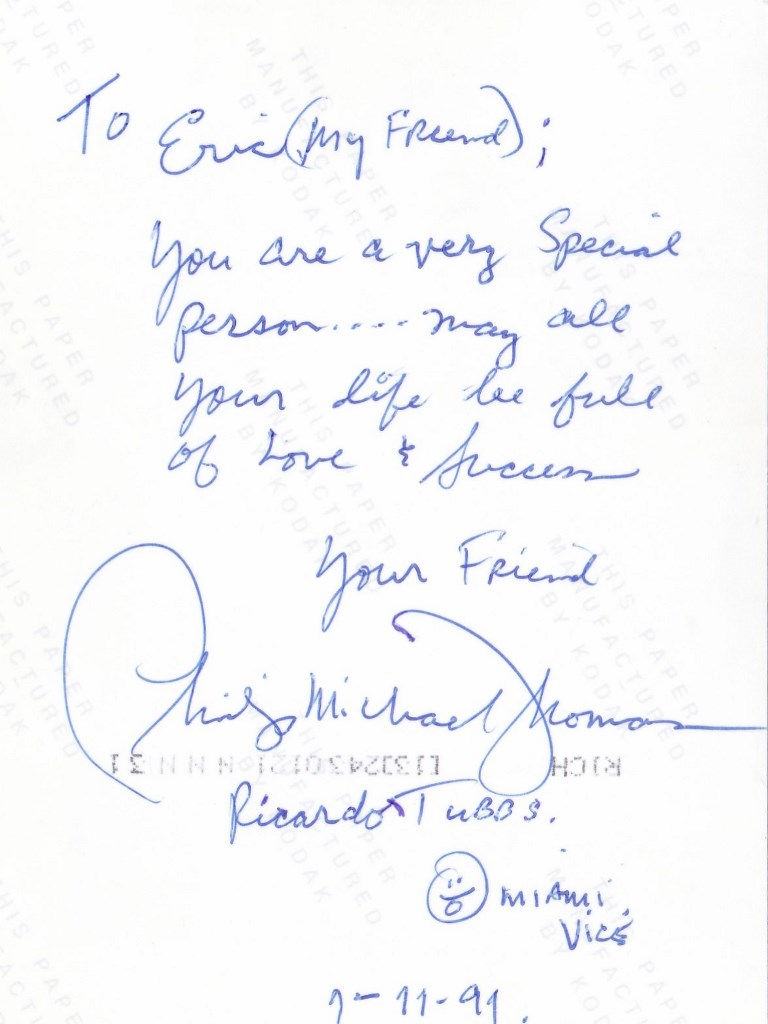 To Eric (My Friend);
You are a very Special
person.... may all
your life be full
of Love & Success
Your Friend
Philip Michael Thomas
RICH [13]2430[2]01 N N N N 31
Ricardo Tubbs.
MIAMI
VICE
1-11-91.
THIS PAPER
MANUFACTURED
BY KODAK